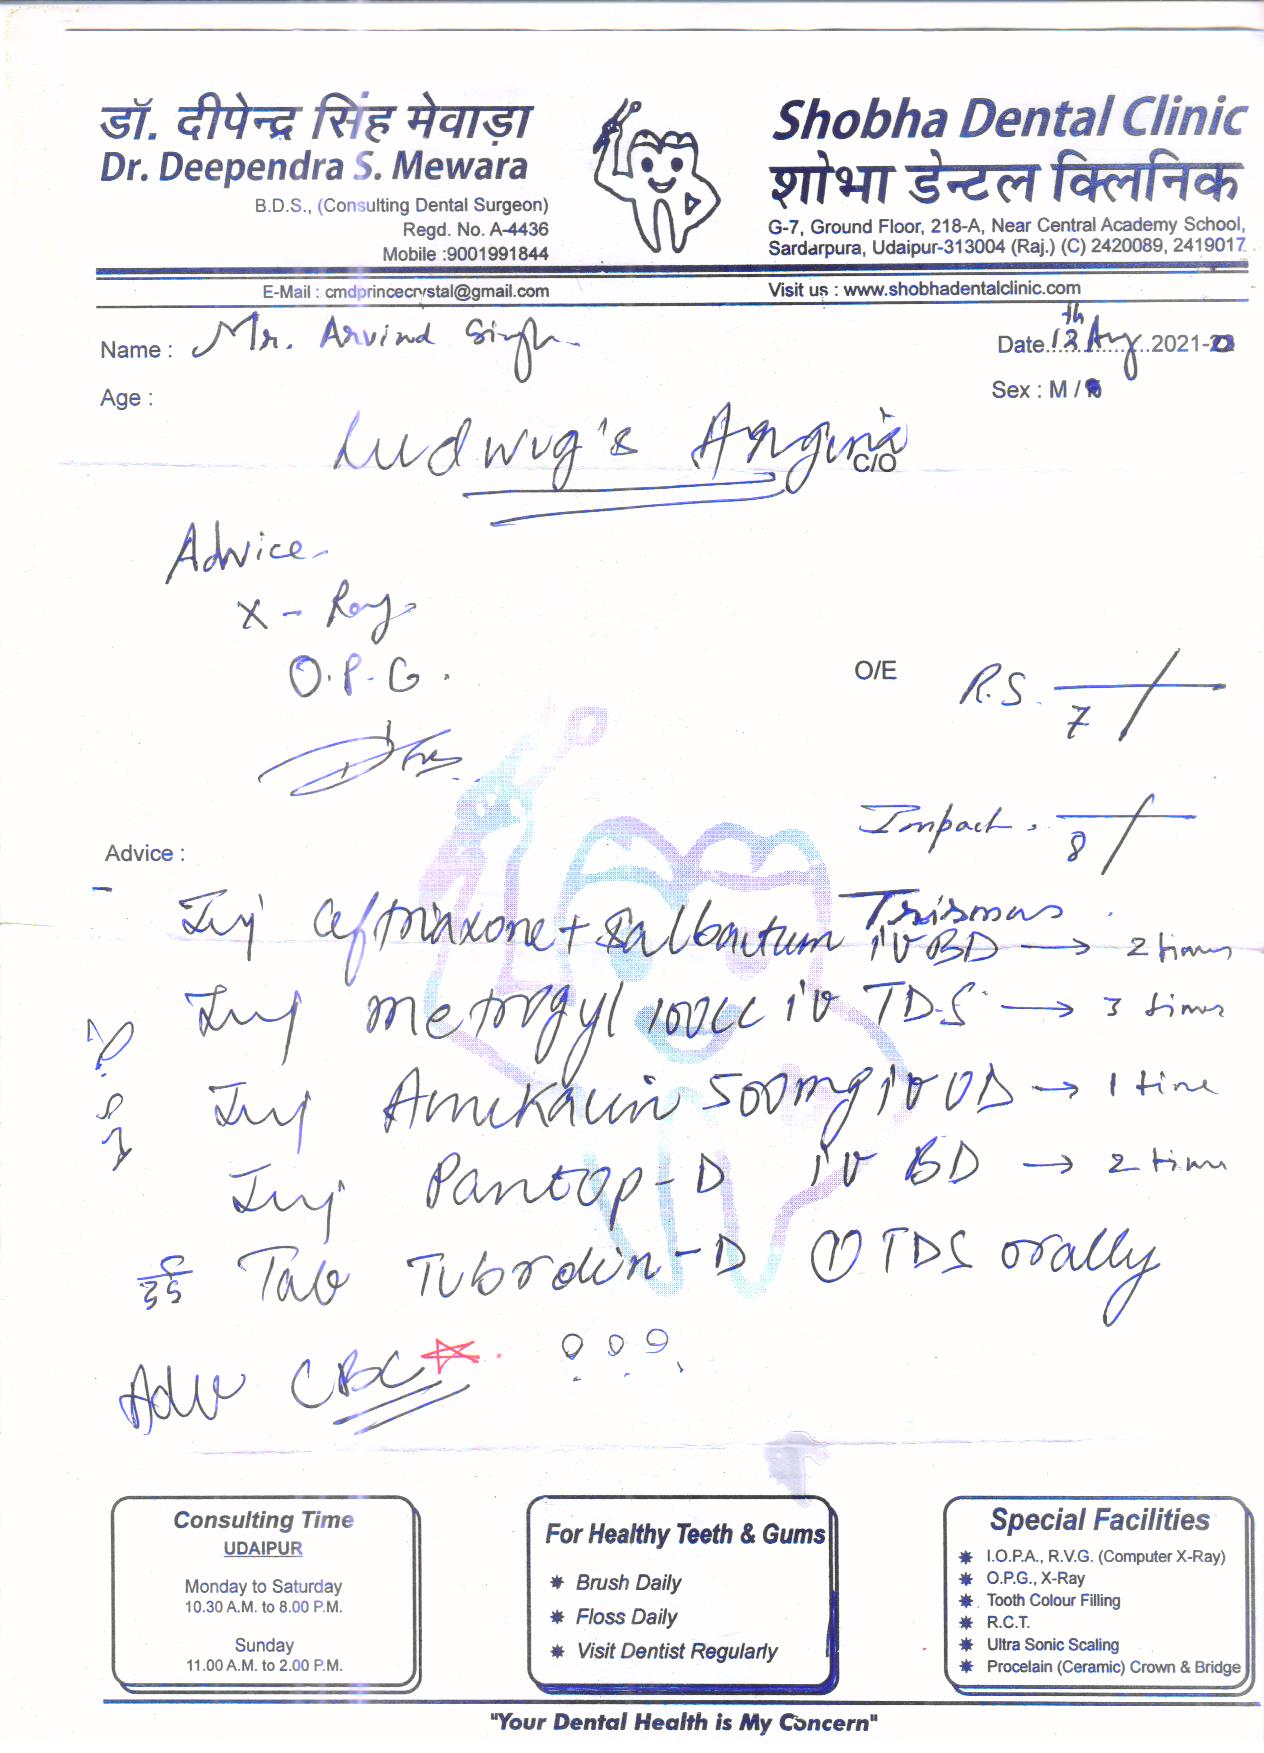 डॉ. दीपेन्द्र सिंह मेवाड़ा
Dr. Deependra S. Mewara
B.D.S., (Consulting Dental Surgeon)
Regd. No. A-4436
Mobile :9001991844
E-Mail : cmdprincecrystal@gmail.com
Shobha Dental Clinic
शोभा डेन्टल क्लिनिक
G-7, Ground Floor, 218-A, Near Central Academy School,
Sardarpura, Udaipur-313004 (Raj.) (C) 2420089, 2419017
Visit us : www.shobhadentalclinic.com
Name : Mr. Arvind Singh
Date..12th Aug..2021-22
Age :
Sex : M /
Ludwig's Angina
C/O
Advice -
X - Ray
O.P.G.
O/E R.S. 7
Impact. 8
Trismus.
Advice :
Inj Ceftriaxone + Salbactum iv BD → 2 times
Inj metrogyl 100CC iv TDS → 3 times
Inj Amikacin 500mg iv OD → 1 time
Inj Pantop-D iv BD → 2 time
Tab Tubrodin-D ① TDS orally
Adv CBC
Consulting Time
UDAIPUR
Monday to Saturday
10.30 A.M. to 8.00 P.M.
Sunday
11.00 A.M. to 2.00 P.M.
For Healthy Teeth & Gums
Brush Daily
Floss Daily
Visit Dentist Regularly
Special Facilities
I.O.P.A., R.V.G. (Computer X-Ray)
O.P.G., X-Ray
Tooth Colour Filling
R.C.T.
Ultra Sonic Scaling
Procelain (Ceramic) Crown & Bridge
"Your Dental Health is My Concern"